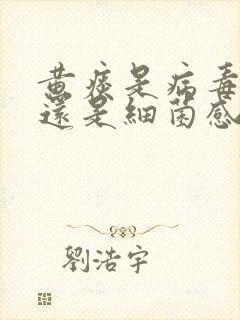 黃痰是病毒
還是細菌感
劉浩宇